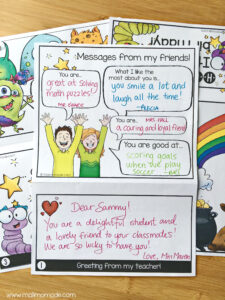 Messages from my friends!
You are...
great at solving
math puzzles!
MR GRACE
What I like the
most about you is...
you smile a lot and
laugh all the time!
You are... MRS HALL
a caring and loyal friend
You are good at...
scoring goals
when we play
soccer
Dear Sammy!
You are a delightful student and
a lovely friend to your classmates!
We are so lucky to have you!
Love, Mrs Marsh
Greeting from my teacher!
www.mallmomade.com